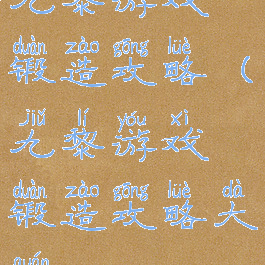 九黎游戏
duàn zào gōng lüè
锻造攻略(
jiǔ lí yóu xì
九黎游戏
duàn zào gōng lüè dà
锻造攻略大
quán